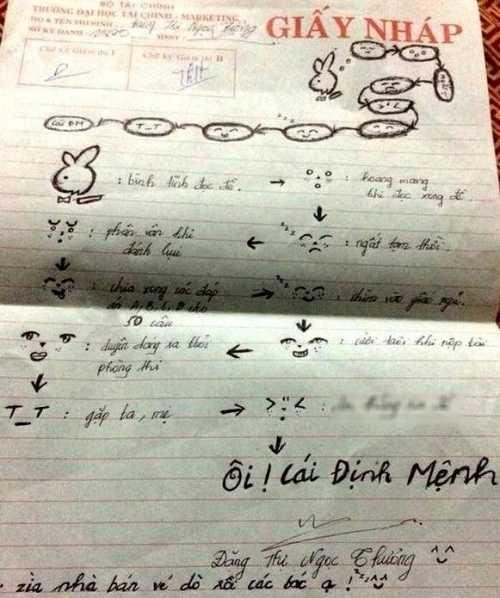 BỘ TÀI CHÍNH
TRƯỜNG ĐẠI HỌC TÀI CHÍNH - MARKETING
HỌ & TÊN THÍ SINH: Đặng Thị Ngọc Thương
SỐ KÝ DANH: MSSV:
GIẤY NHÁP
Chữ Ký Giám thị I
Chữ Ký Giám thị II
zzz
T_T
: bình tĩnh đọc đề. → : hoang mang
khi đọc xong đề
: phân vân khi
đánh lụi
← zzz : ngất tạm thời.
: chia xong các đáp
án A, B, C, D cho
50 câu
→ zzz : chìm vào giấc ngủ.
: duyên dáng ra khỏi
phòng thi
← : cười tươi khi nộp bài
T_T : gặp ba, mẹ → >"<:
Ôi! Cái Định Mệnh
Đặng Thị Ngọc Thương ^^
zìa nhà bán vé dò xổi các bác ạ! zzz ^^